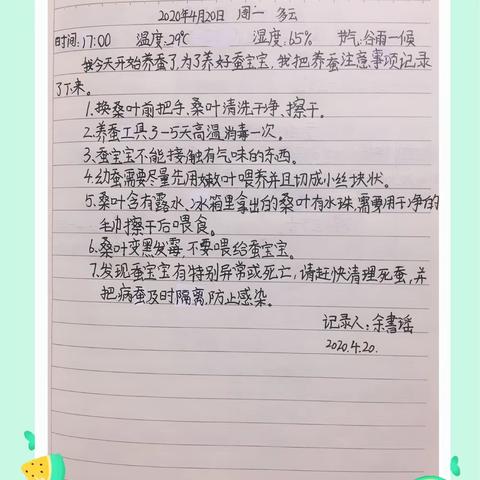 2020年4月20日 周一 多云
时间:17:00 温度:29℃ 湿度:65% 节气:谷雨一候
我今天开始养蚕了,为了养好蚕宝宝,我把养蚕注意事项记录
了下来。
1.换桑叶前把手、桑叶清洗干净、擦干。
2.养蚕工具3-5天高温消毒一次。
3.蚕宝宝不能接触有气味的东西。
4.幼蚕需要尽量先用嫩叶喂养并且切成小丝块状。
5.桑叶含有露水、冰箱里拿出的桑叶有水珠,需要用干净的
毛巾擦干后喂食。
6.桑叶变黑发霉,不要喂给蚕宝宝。
7.发现蚕宝宝有特别异常或死亡,请赶快清理死蚕,并
把病蚕及时隔离,防止感染。
记录人:余書瑶
2020.4.20.